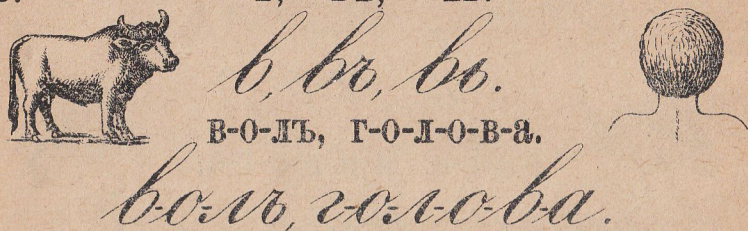 в, въ, вь.
в-о-лъ, г-о-л-о-в-а.
в-о-лъ, г-о-л-о-в-а.